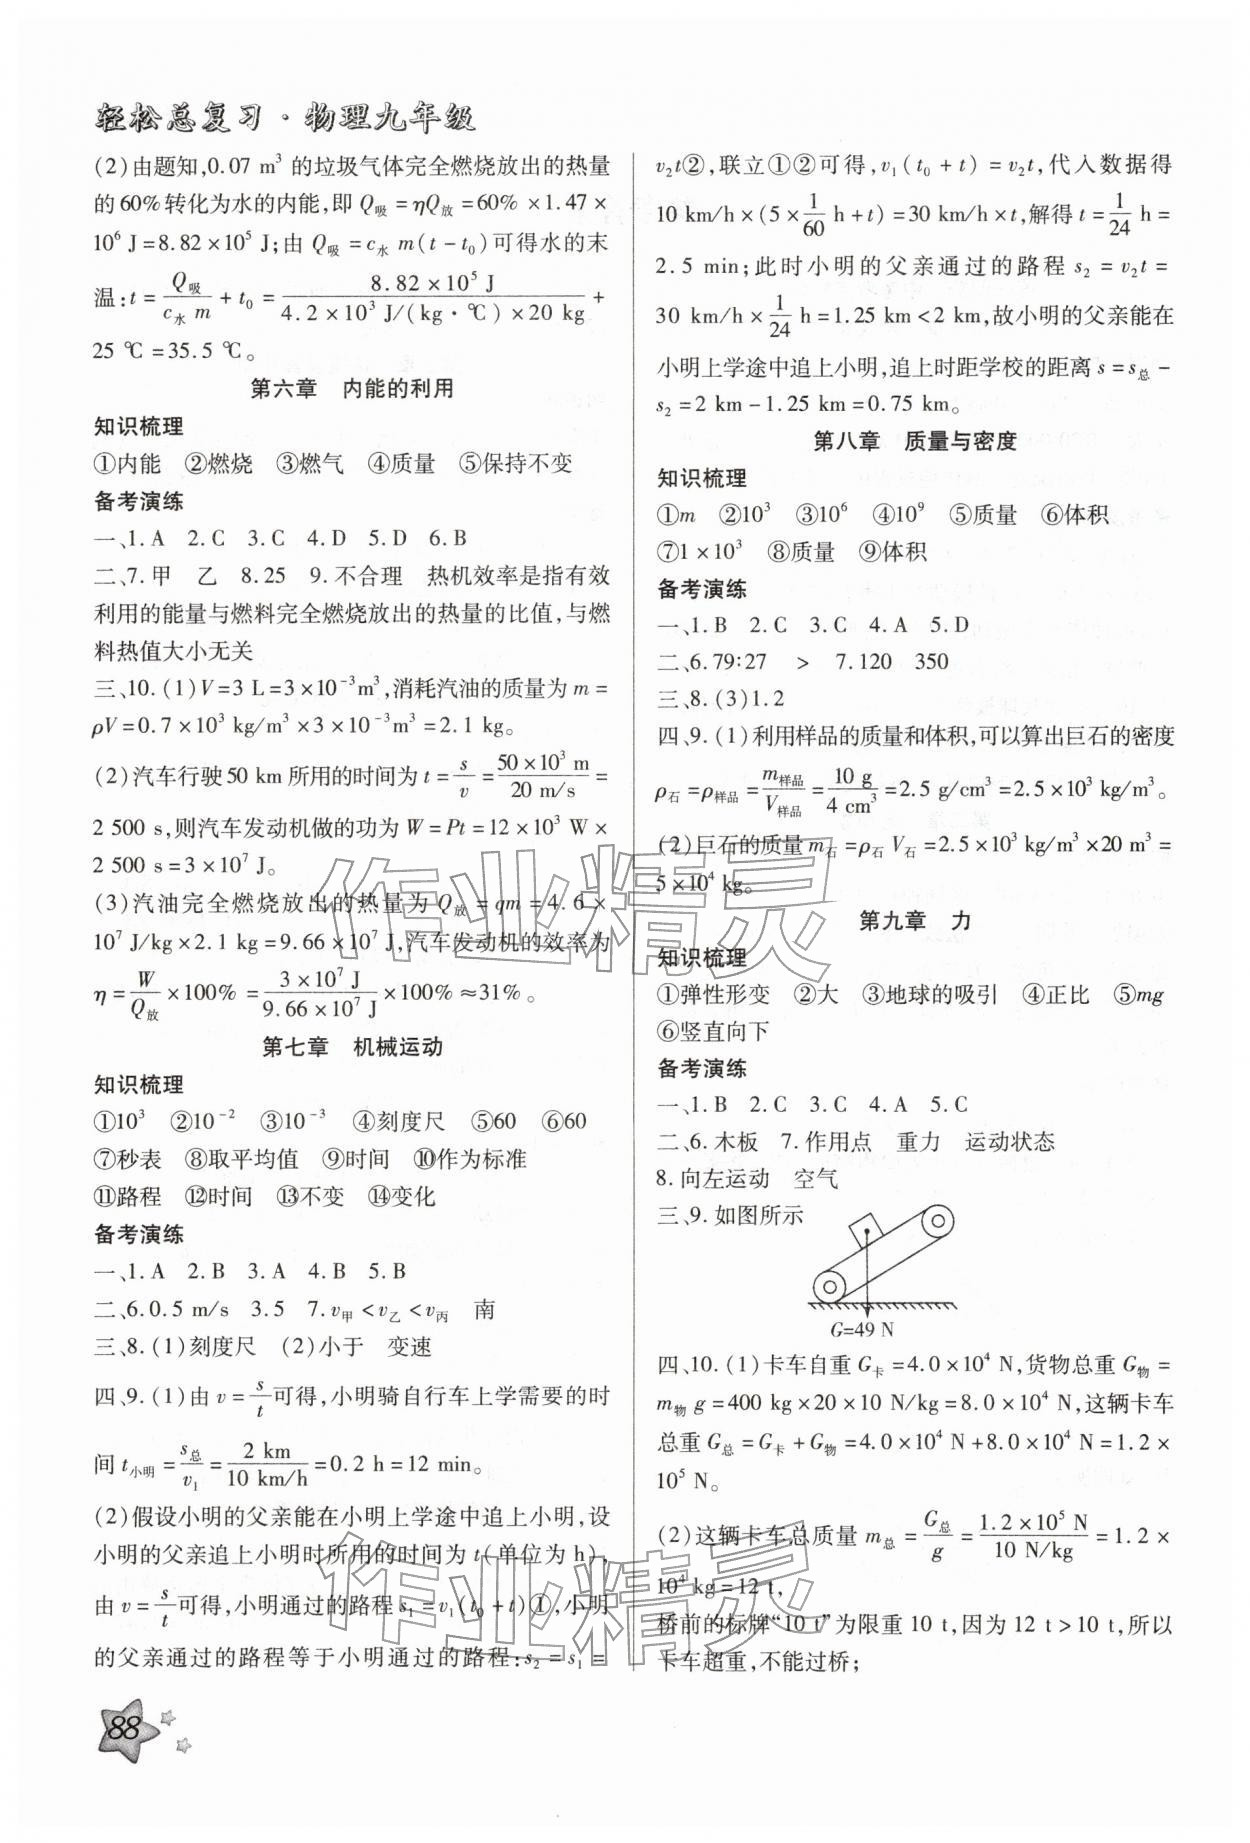 轻松总复习·物理九年级
(2)由题知,0.07 m³ 的垃圾气体完全燃烧放出的热量
的60%转化为水的内能,即 Q吸=ηQ放=60%×1.47×
10⁶ J=8.82×10⁵ J;由 Q吸=c水 m(t-t₀)可得水的末
温:t=Q吸/(c水 m)+t₀=8.82×10⁵ J/(4.2×10³ J/(kg·℃)×20 kg)+
25 ℃=35.5 ℃。
第六章 内能的利用
知识梳理
①内能 ②燃烧 ③燃气 ④质量 ⑤保持不变
备考演练
一、1.A 2.C 3.C 4.D 5.D 6.B
二、7.甲 乙 8.25 9.不合理 热机效率是指有效
利用的能量与燃料完全燃烧放出的热量的比值,与燃
料热值大小无关
三、10.(1)V=3 L=3×10⁻³m³,消耗汽油的质量为 m=
ρV=0.7×10³ kg/m³×3×10⁻³m³=2.1 kg。
(2)汽车行驶50 km所用的时间为 t=s/v=50×10³ m/20 m/s=
2 500 s,则汽车发动机做的功为 W=Pt=12×10³ W×
2 500 s=3×10⁷ J。
(3)汽油完全燃烧放出的热量为 Q放=qm=4.6×
10⁷ J/kg×2.1 kg=9.66×10⁷ J,汽车发动机的效率为
η=W/Q放×100%=3×10⁷ J/9.66×10⁷ J×100%≈31%。
第七章 机械运动
知识梳理
①10³ ②10⁻² ③10⁻³ ④刻度尺 ⑤60 ⑥60
⑦秒表 ⑧取平均值 ⑨时间 ⑩作为标准
⑪路程 ⑫时间 ⑬不变 ⑭变化
备考演练
一、1.A 2.B 3.A 4.B 5.B
二、6.0.5 m/s 3.5 7.v甲<v乙<v丙 南
三、8.(1)刻度尺 (2)小于 变速
四、9.(1)由 v=s/t可得,小明骑自行车上学需要的时
间 t小明=s总/v₁=2 km/10 km/h=0.2 h=12 min。
(2)假设小明的父亲能在小明上学途中追上小明,设
小明的父亲追上小明时所用的时间为 t(单位为 h),
由 v=s/t可得,小明通过的路程 s₁=v₁(t₀+t)①,小明
的父亲通过的路程等于小明通过的路程:s₂=s₁=
88
v₂t②,联立①②可得,v₁(t₀+t)=v₂t,代入数据得
10 km/h×(5×1/60 h+t)=30 km/h×t,解得 t=1/24 h=
2.5 min;此时小明的父亲通过的路程 s₂=v₂t=
30 km/h×1/24 h=1.25 km<2 km,故小明的父亲能在
小明上学途中追上小明,追上时距学校的距离 s=s总-
s₂=2 km-1.25 km=0.75 km。
第八章 质量与密度
知识梳理
①m ②10³ ③10⁶ ④10⁹ ⑤质量 ⑥体积
⑦1×10³ ⑧质量 ⑨体积
备考演练
一、1.B 2.C 3.C 4.A 5.D
二、6.79∶27 > 7.120 350
三、8.(3)1.2
四、9.(1)利用样品的质量和体积,可以算出巨石的密度
ρ石=ρ样品=m样品/V样品=10 g/4 cm³=2.5 g/cm³=2.5×10³ kg/m³。
(2)巨石的质量 m石=ρ石 V石=2.5×10³ kg/m³×20 m³=
5×10⁴ kg。
第九章 力
知识梳理
①弹性形变 ②大 ③地球的吸引 ④正比 ⑤mg
⑥竖直向下
备考演练
一、1.B 2.C 3.C 4.A 5.C
二、6.木板 7.作用点 重力 运动状态
8.向左运动 空气
三、9.如图所示
G=49 N
四、10.(1)卡车自重 G卡=4.0×10⁴ N,货物总重 G物=
m物 g=400 kg×20×10 N/kg=8.0×10⁴ N,这辆卡车
总重 G总=G卡+G物=4.0×10⁴ N+8.0×10⁴ N=1.2×
10⁵ N。
(2)这辆卡车总质量 m总=G总/g=1.2×10⁵ N/10 N/kg=1.2×
10⁴ kg=12 t,
桥前的标牌“10 t”为限重10 t,因为12 t>10 t,所以
卡车超重,不能过桥;
作业精灵
作业精灵